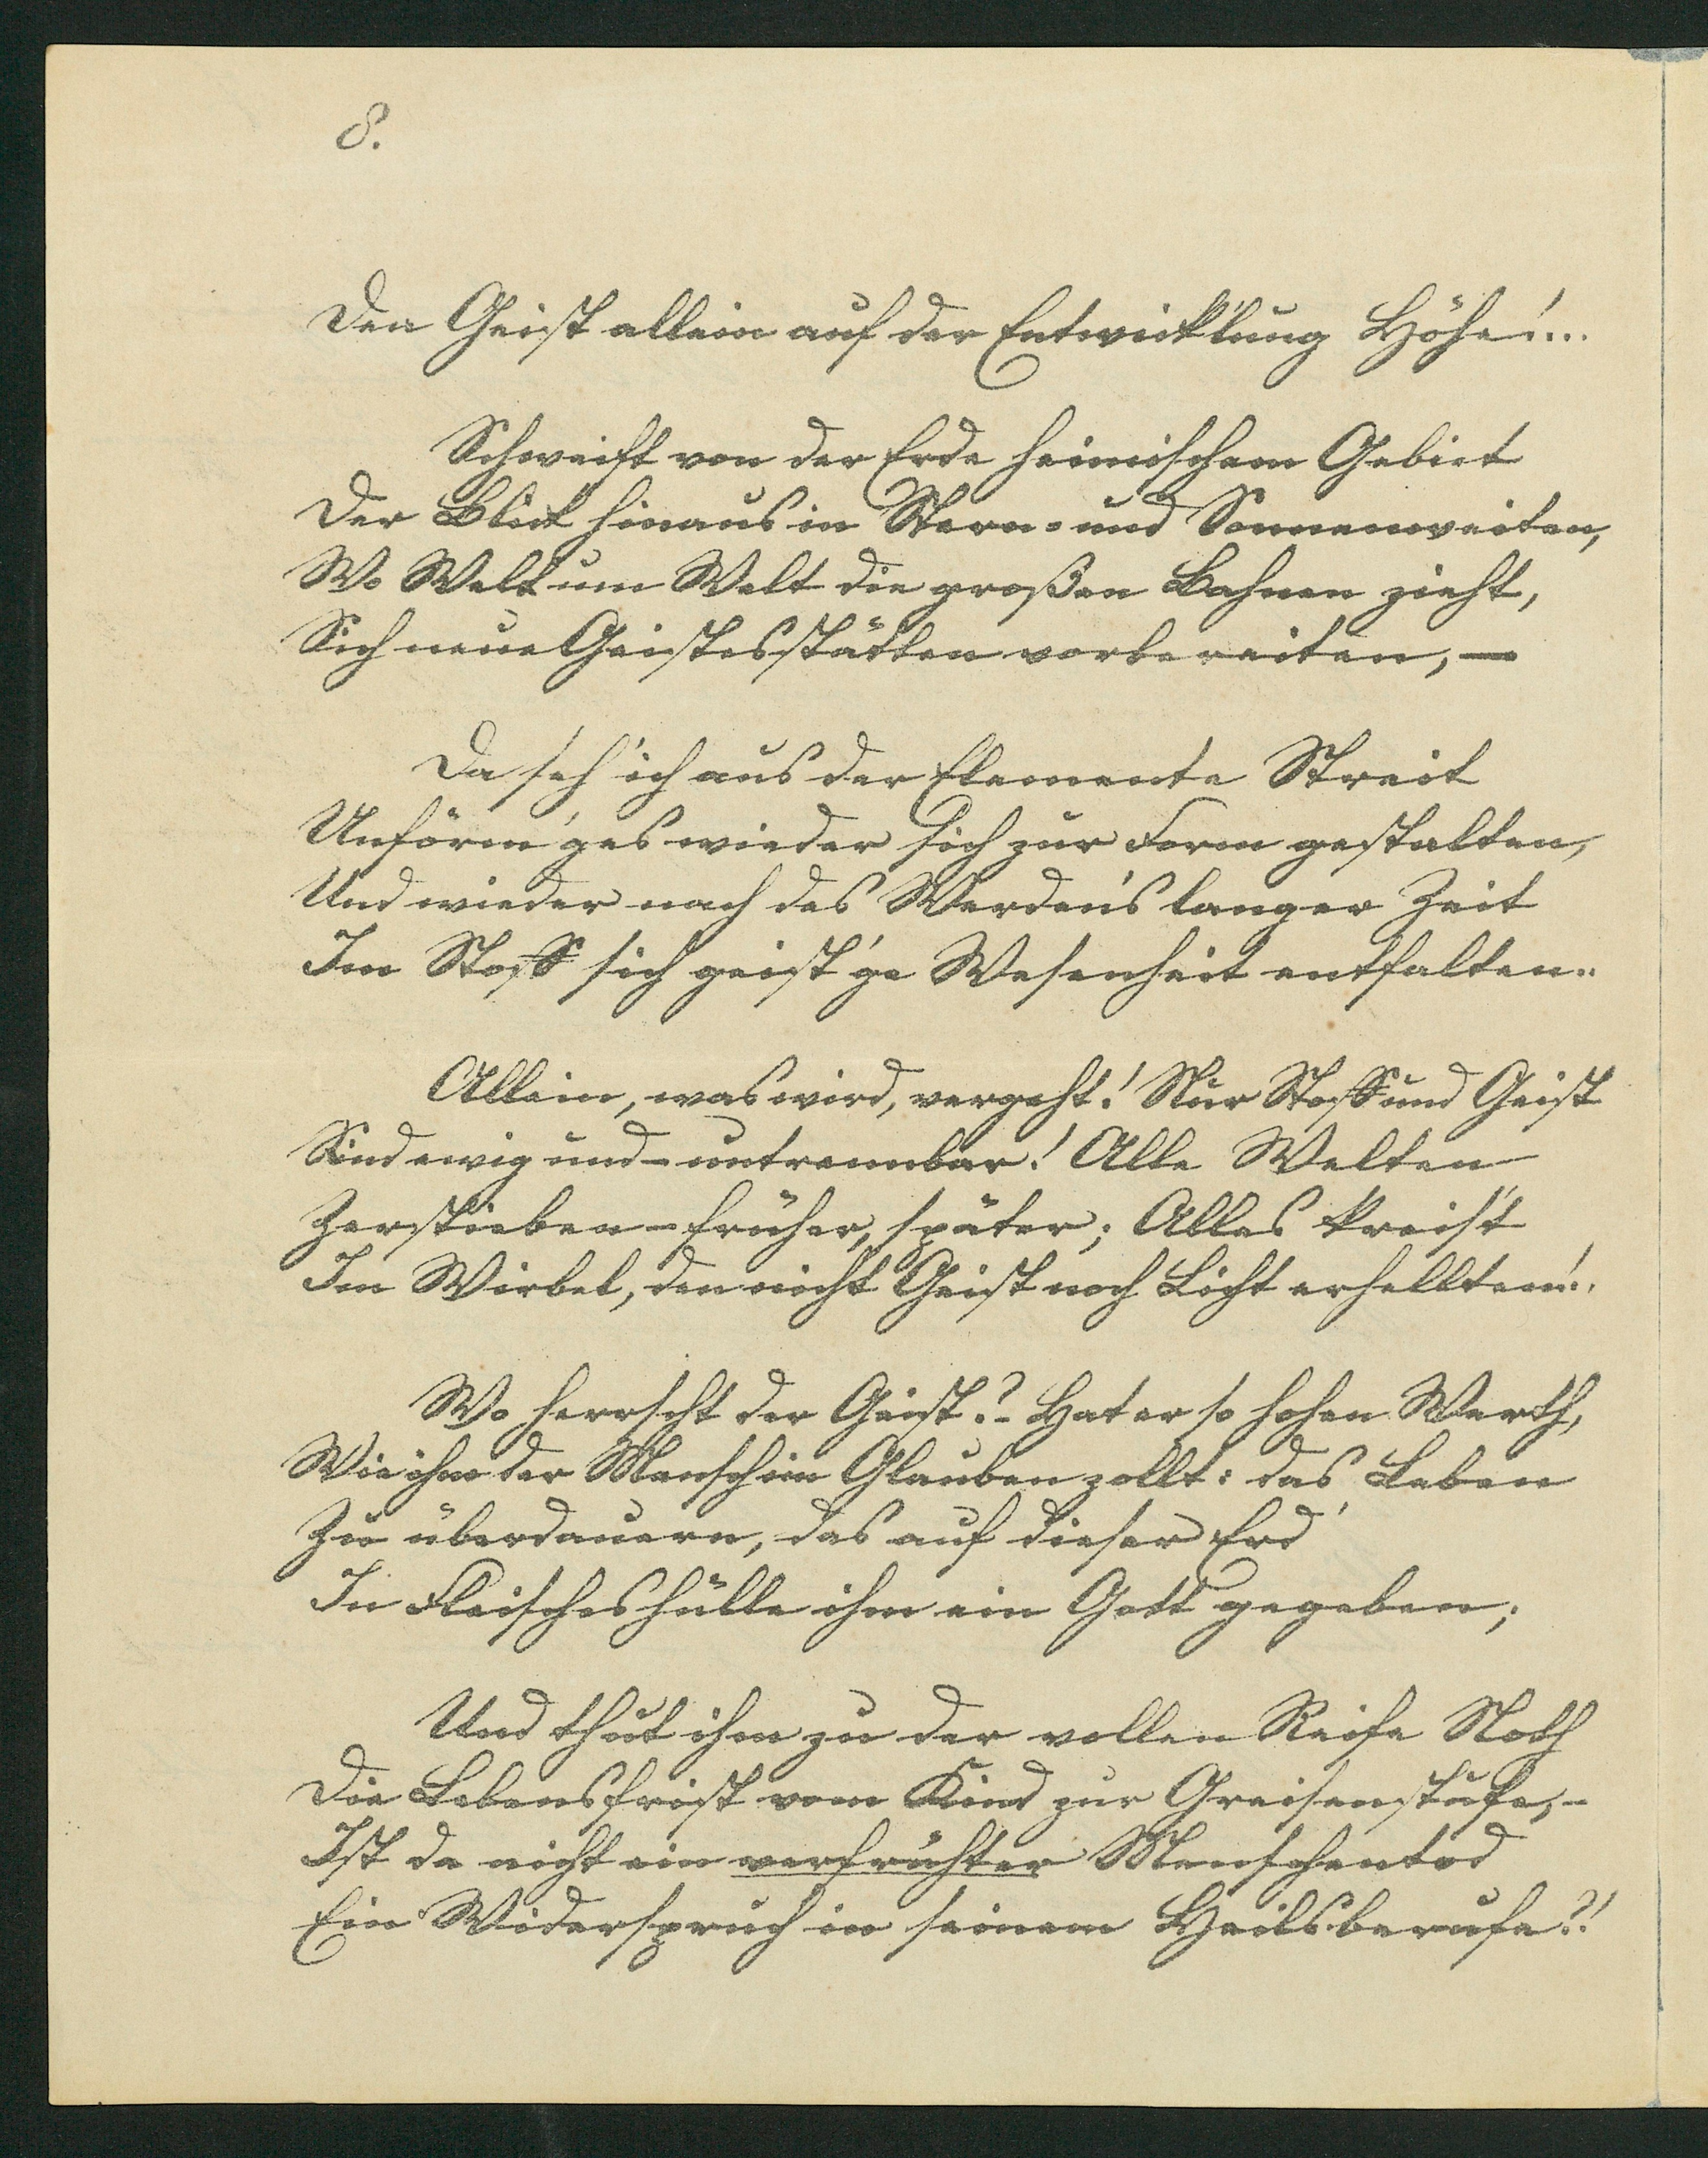 8.
Den Geist allein auf der Entwicklung Höhe!...
Schweift von der Erde heimischem Gebiet
Der Blick hinaus in Stern- und Sonnenweiten,
Wo Welt um Welt die großen Bahnen zieht,
Sich neue Geistesstätten vorbereiten, —
Da seh' ich aus der Elemente Streit
Unförm'ges wieder sich zur Form gestalten,
Und wieder nach des Werdens langer Zeit
Im Stoff sich geist'ge Wesenheit entfalten..
Allein, was wird, vergeht! Nur Stoff und Geist
Sind ewig und - untrennbar! Alle Welten
Zerstieben - früher, später; Alles kreis't
Im Wirbel, den nicht Geist noch Licht erhellten!..
Wo herrscht der Geist? - Hat er so hohen Werth,
Wie ihm der Mensch im Glauben zollt: das Leben
Zu überdauern, das auf dieser Erd'
In Fleischeshülle ihm ein Gott gegeben;
Und thut ihm zu der vollen Reife Noth
Die Lebensfrist vom Kind zur Greisenstufe, -
Ist da nicht ein verfrühter Menschentod
Ein Widerspruch in seinem Heilsberufe?!